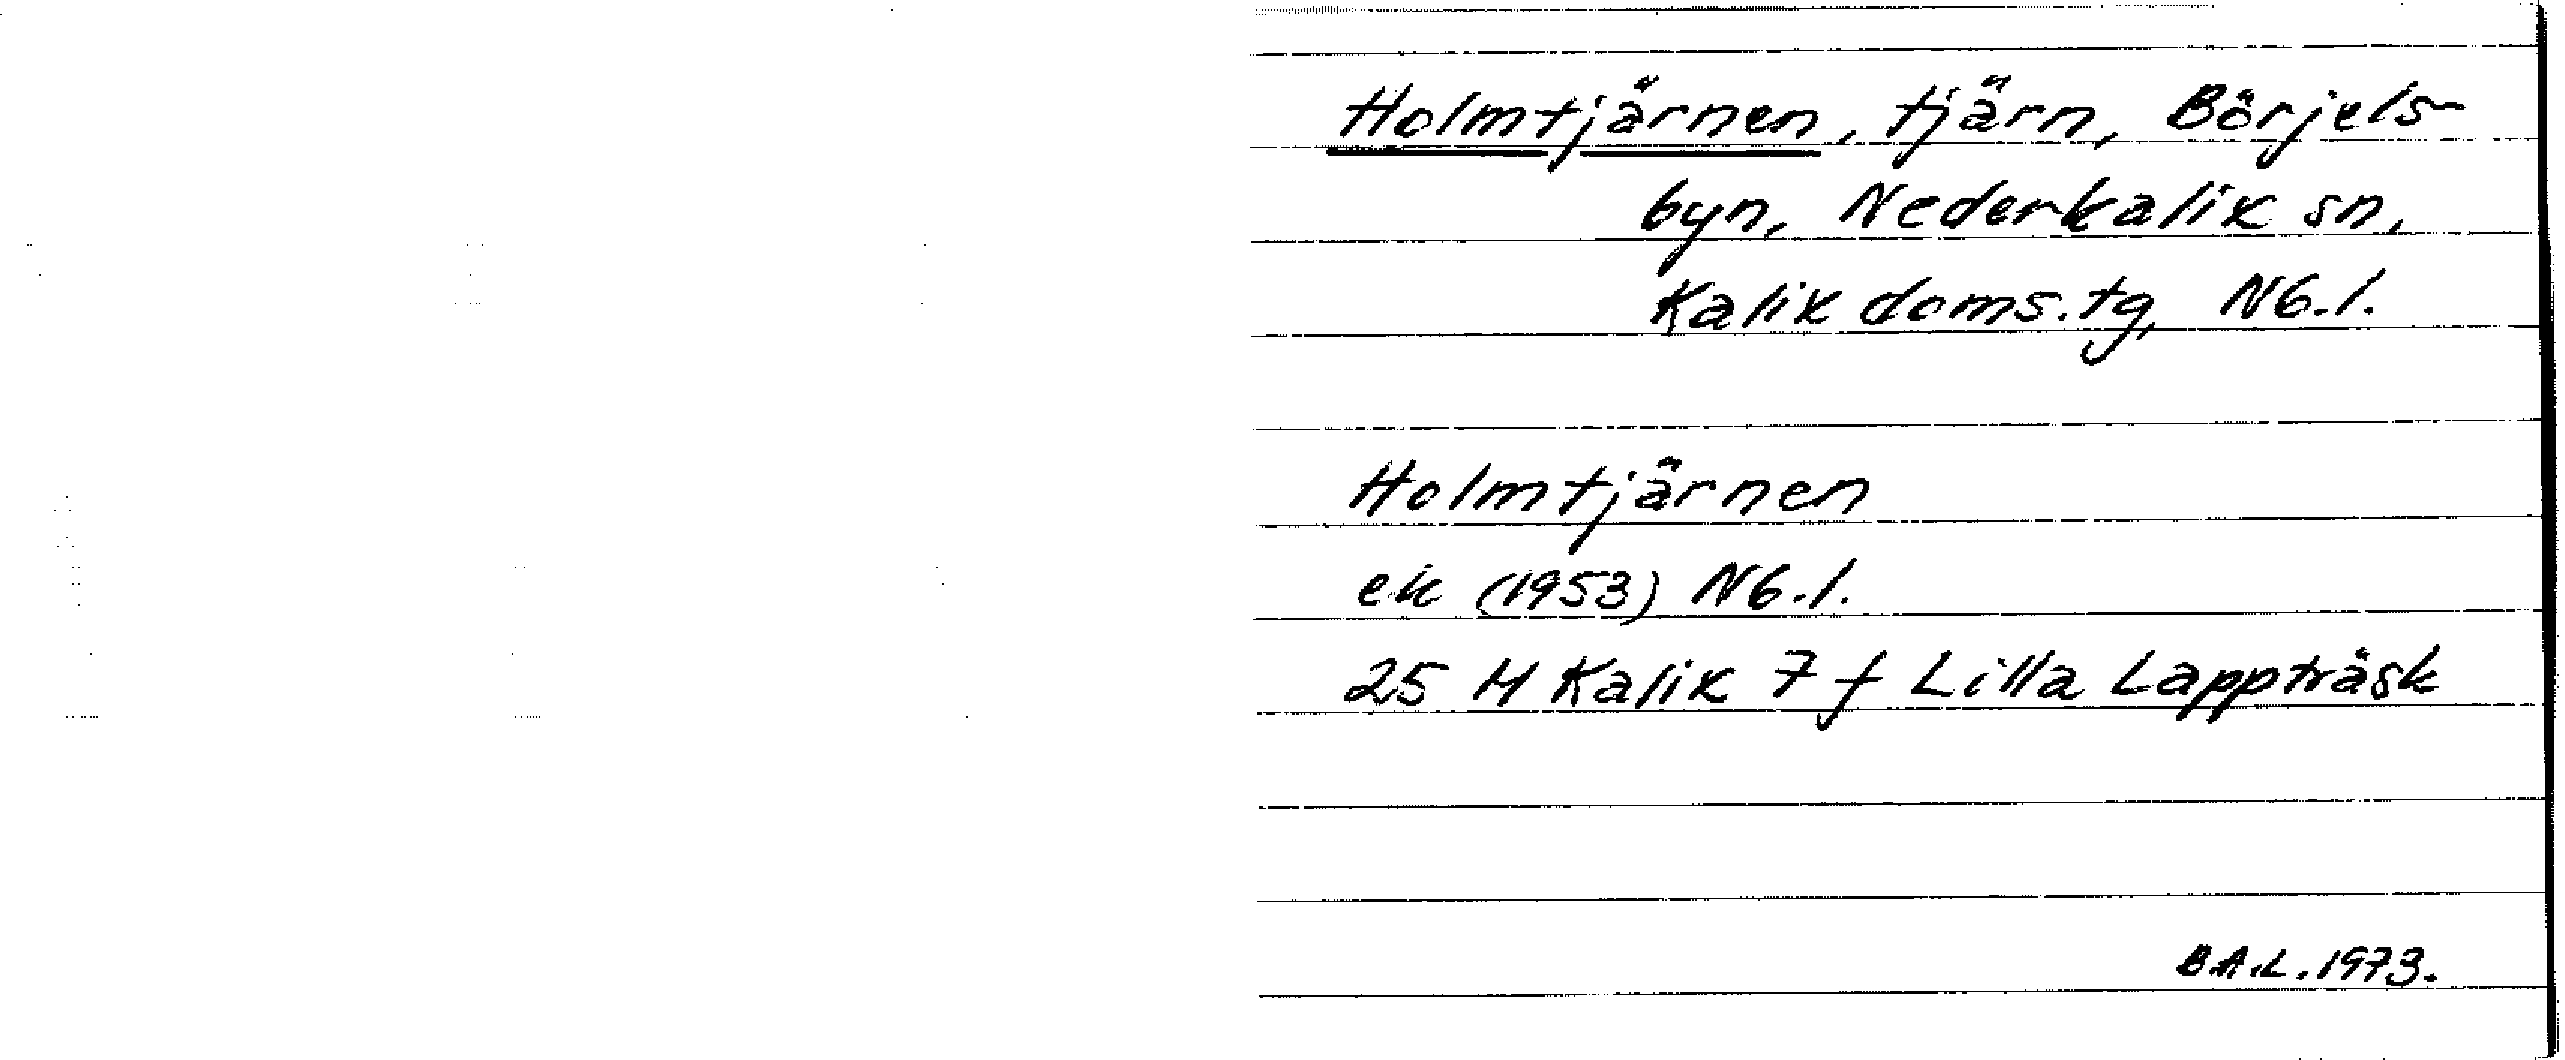 Holmtjärnen, tjärn, Börjels-
byn, Nederkalix sn,
Kalix doms.tg, Nb.l.
Holmtjärnen
ek (1953) Nb.l.
25 M Kalix 7 f Lilla Lappträsk
B.A.L. 1973.